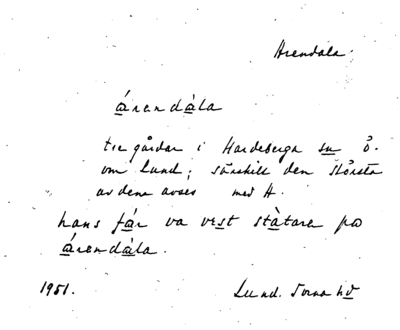 Arendala.
árendàla
tre gårdar i Hardeberga sn ö.
om Lund; särskilt den största
av dem avses med A.
hans fár va vest stàtare pɔ
árendàla.
1951. Lund. Torna hd